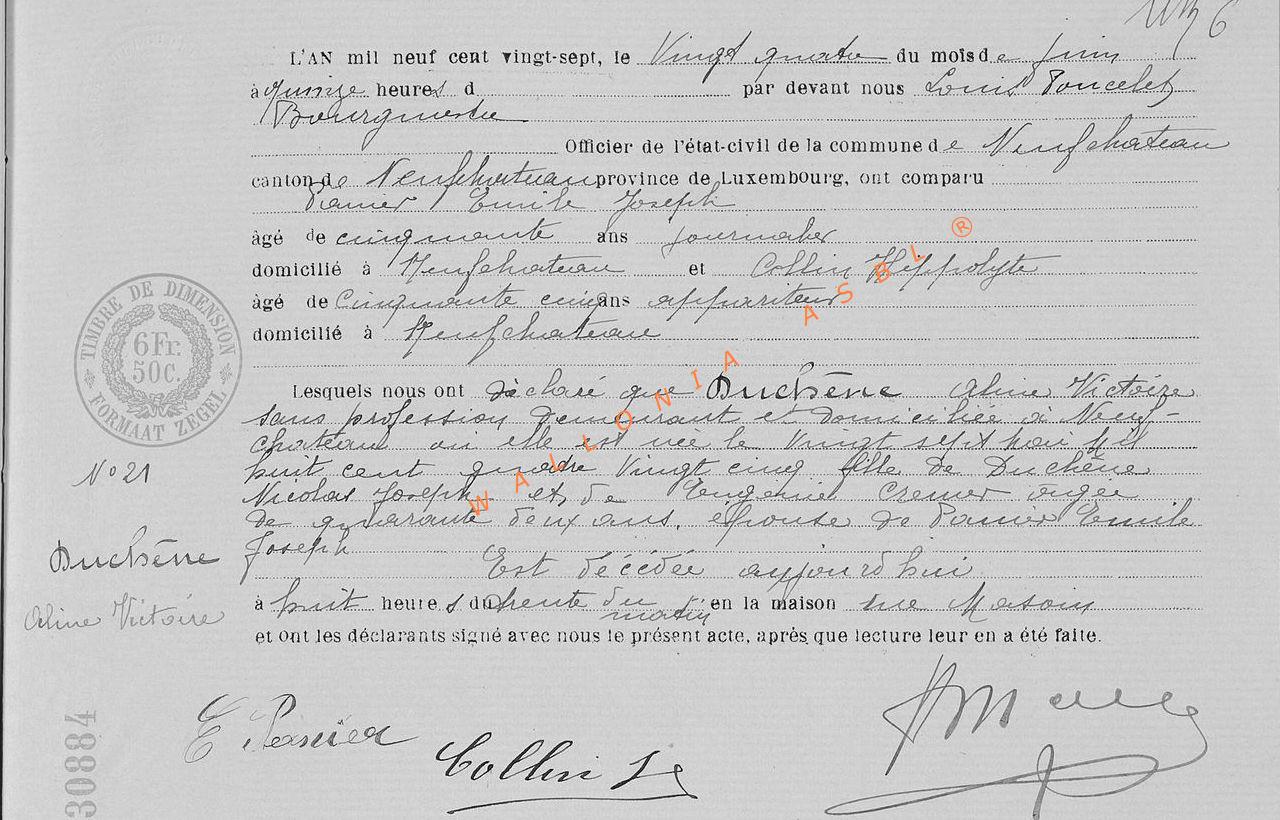 L'AN mil neuf cent vingt-sept, le Vingt quatre du mois de juin
à quinze heures d par devant nous Louis Poncelet
Bourgmestre
Officier de l'état-civil de la commune de Neufchateau
canton de Neufchateau province de Luxembourg, ont comparu
Panier Emile Joseph
âgé de cinquante ans journalier
domicilié à Neufchateau et Collin Hippolyte
âgé de Cinquante cinq ans appariteur
domicilié à Neufchateau
Lesquels nous ont déclaré que Duchêne Aline Victoire
sans profession demeurant et domiciliée à Neuf-
chateau où elle est née le vingt sept mai mil
huit cent quatre vingt cinq fille de Duchêne
Nicolas Joseph et de Eugenie Cremer âgée
de quarante deux ans, épouse de Panier Emile
Joseph
Est décédée aujourd'hui
à huit heures trente du
matin en la maison rue
et ont les déclarants signé avec nous le présent acte, après que lecture leur en a été faite.
TIMBRE DE DIMENSION
6 Fr.
50 C.
FORMAAT ZEGEL
N° 21
Duchêne
Aline Victoire
30884
E Panier
Collin
WALLONIA ASBL ®